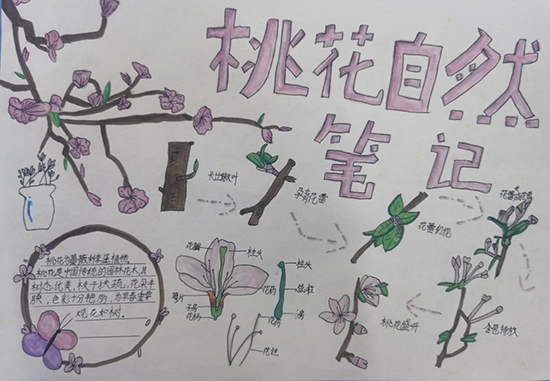 桃花自然
笔记
长出嫩叶
孕育花蕾
花蕾初绽
含苞待放
桃花盛开
花瓣
柱头
萼片
子房
花柄
花药
柱头
花柱
花丝
桃花为蔷薇科李属植物
桃花是中国传统的园林花木其
树态优美，枝干扶疏，花朵丰
腴，色彩十分艳丽，为早春重要
观花树树。